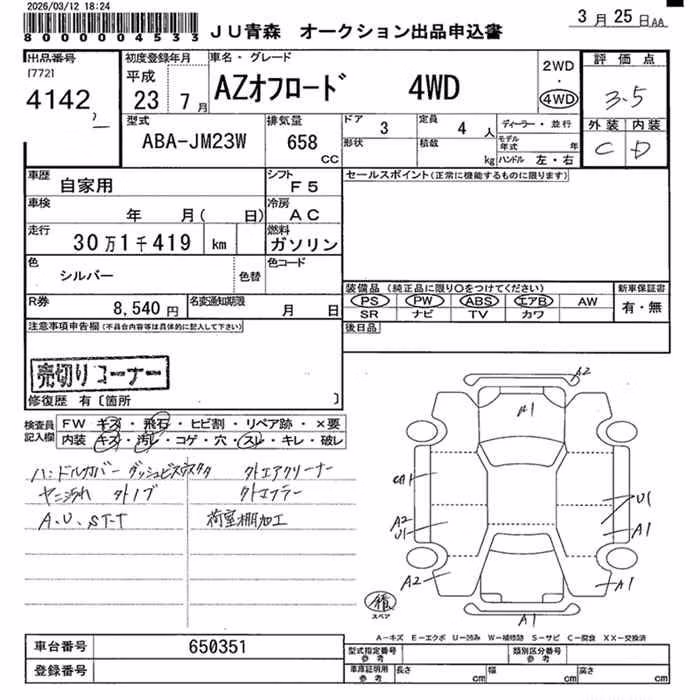 2026/03/12 18:24
8000004533
JU青森 オークション出品申込書
3月25日AA
出品番号
[772]
4142
初度登録年月
平成
23 7月
車名・グレード
AZオフロード 4WD
2WD
・
4WD
評価点
3.5
外装 内装
C D
型式
ABA-JM23W
排気量
658
CC
ドア
3
定員
4 人
形状
積載
kg
ディーラー・並行
モデル年式 年
ハンドル 左・右
車歴
自家用
シフト
F5
セールスポイント(正常に機能するものに限ります)
車検
年 月( 日)
冷房
AC
走行
30万1千419 km
燃料
ガソリン
色
シルバー
色替
色コード
装備品 (純正品に限り○をつけてください)
PS PW ABS エアB AW
SR ナビ TV カワ
新車保証書
有・無
R券
8,540円
名変通知期限
月 日
後日品
注意事項申告欄(不具合内容等は具体的に記入して下さい)
売切りコーナー
修復歴 有〔箇所 〕
検査員記入欄
FW キズ・飛石・ヒビ割・リペア跡・×要
内装 キズ・汚レ・コゲ・穴・スレ・キレ・破レ
ハンドルカバー ダッシュビス
外エアクリーナー
ヤニ汚れ 外ノブ
外マフラー
A、U、ST-T
荷室棚加工
A2
A1
U1
A2
U1
U1
A1
A2
A1
A1
積
スペア
A-キズ E-エクボ U-凹み W-補修跡 S-サビ C-腐食 XX-交換済
車台番号
650351
型式指定番号
参考
類別区分番号
参考
登録番号
車庫証明用
参考
長さ cm
幅 cm
高さ cm